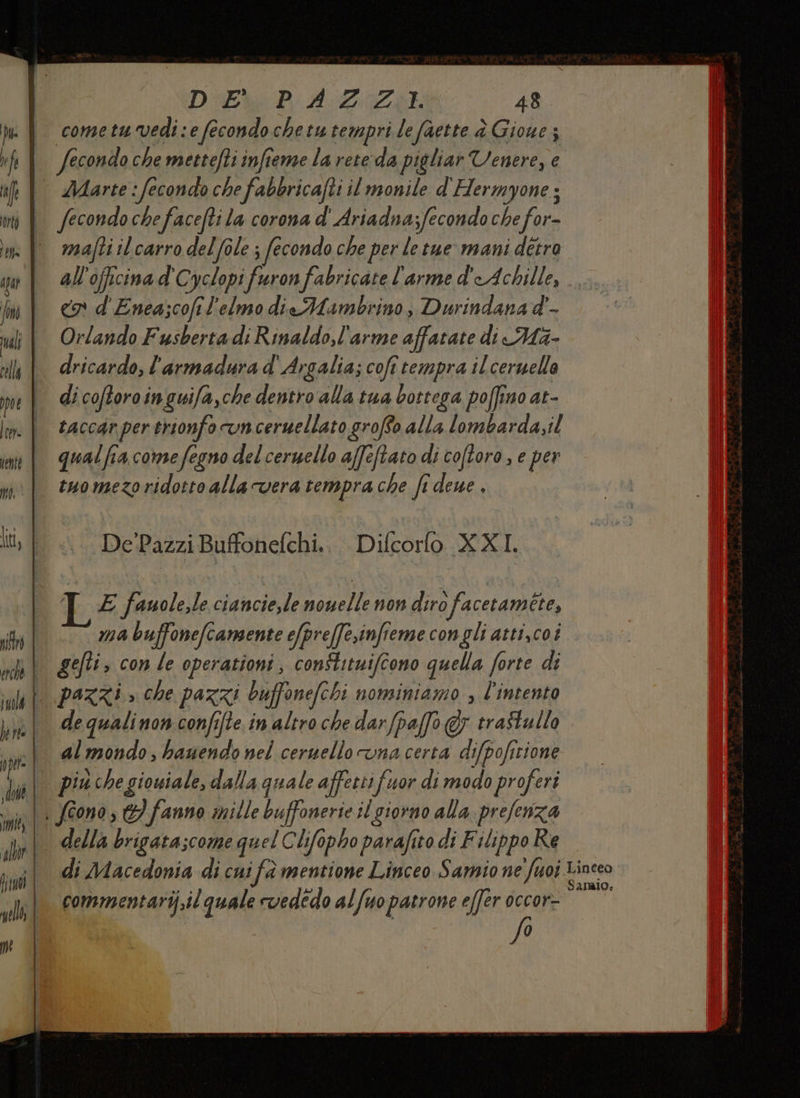 DE' PAZZI. 48
come tu vedi: e secondo che tu tempri le saette à Gioue;
secondo che mettesti insieme la rete da pigliar Venere, e
Marte: secondo che fabbricasti il monile d'Hermyone;
secondo che facesti la corona d'Ariadna; secondo che for-
masti il carro del sole; secondo che per le tue mani dẽtro
all'officina d'Cyclopi furon fabricate l'arme d'Achille,
& d'Enea; cosi l'elmo di Mambrino, Durindana d'-
Orlando Fusberta di Rinaldo, l'arme affatate di Mã-
dricardo, l'armadura d'Argalia; cosi tempra il ceruello
di costoro in guisa, che dentro alla tua bottega possino at-
taccar per trionfo vn ceruellato grosso alla lombarda, il
qual sia come segno del ceruello assestato di costoro, e per
tuo mezo ridotto alla vera tempra che si deue.
De'Pazzi Buffoneschi. Discorso XXI.
LE fauole, le ciancie, le nouelle non dirò facetamẽte,
ma buffonescamente espresse, insieme con gli atti, coi
gesti, con le operationi, constituiscono quella sorte di
pazzi, che pazzi buffoneschi nominiamo, l'intento
de quali non consiste in altro che dar spasso & trastullo
al mondo, hauendo nel ceruello vna certa dispositione
più che giouiale, dalla quale affetti fuor di modo proferi
scono, & fanno mille buffonerie il giorno alla presenza
della brigata; come quel Clisopho parasito di Filippo Re
di Macedonia di cui fà mentione Linceo Samio ne suoi
Linceo
Samio.
commentarij, il quale vedẽdo al suo patrone esser occor-
so